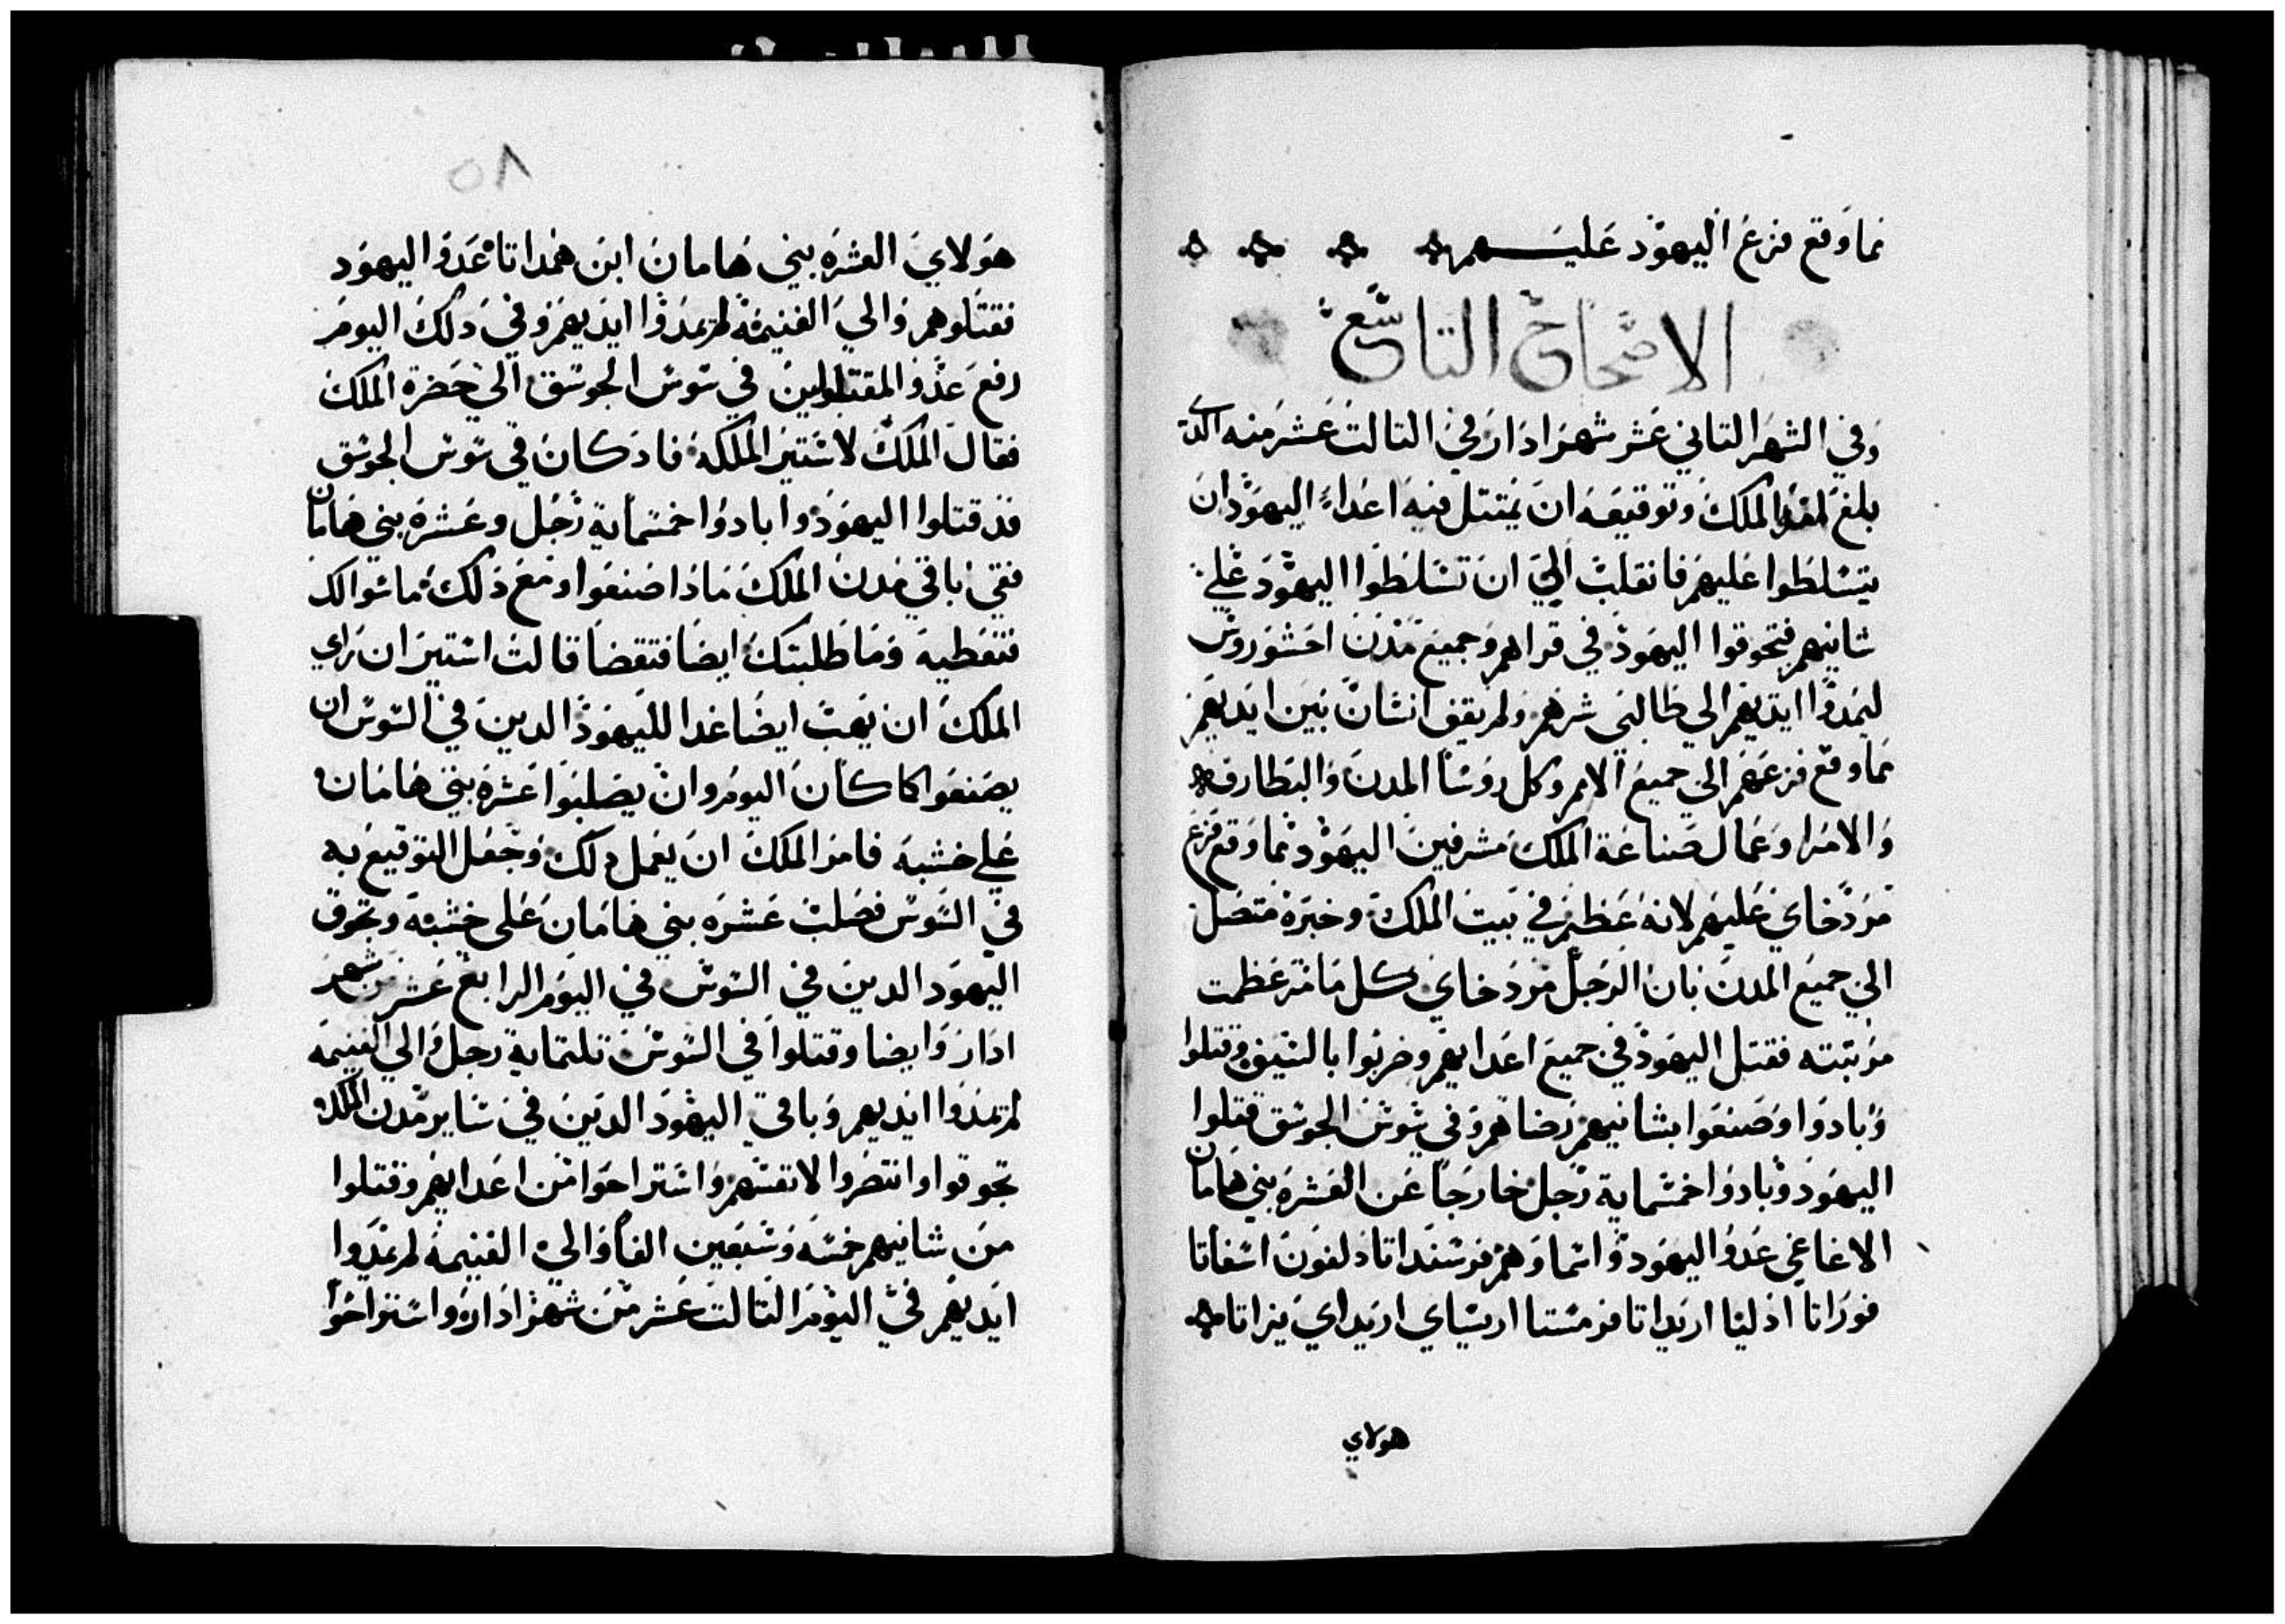 نما وقع فزع اليهود عليهم
الاصحاح التاسع
وفي الشهر التاني عشر شهر ادار في التالت عشر منه الدي
بلغ الملك وتوقيعه ان يمتتل فيه اعداء اليهود ان
يتسلطوا عليهم فانقلب الي ان تسلطوا اليهود علي
شانيهم فتحوقوا اليهود في قراهم وجميع مدن احشوروش
ليمدوا ايديهم الي طالبي شرهم ولم يقف انسان بين ايديهم
نما وقع فزعهم الي جميع الامم وكل روسا المدن والبطارقه
والامرا وعمال صناعة الملك مشرفين اليهود نما وقع فزع
مردخاي عليهم لانه عظيم في بيت الملك وخبره متصل
الي جميع المدن بان الرجل مردخاي كل ما مر عظمت
مرتبته فقتل اليهود في جميع اعدايهم وضربوا بالسيف وقتلوا
وبادوا وصنعوا بشانيهم رضاهم وفي شوش الجوسق قتلوا
اليهود وبادوا خمسماية رجل خارجا عن العشره بني هامان
الاغاغي عدو اليهود واسما وهم فرسنداتا دلفون اسفاتا
فوراتا ادليا اريداتا فرمستا اريساي اريداي يزاتا
هولاي
٥٨
هولاي العشره بني هامان ابن همداتا عدو اليهود
فقتلوهم والي الغنيمة لم يمدوا ايديهم وفي دلك اليوم
رفع عدد المقتولين في شوش الجوسق الي حضرة الملك
فقال الملك لاستير الملكه فاد كان في شوش الجوسق
قد قتلوا اليهود وابادوا خمسماية رجل وعشره بني هامان
ففي باقي مدن الملك ماذا صنعوا ومع ذلك ما سوالك
فتعطيه وما طلبتك ايضا فتقضا قالت استير ان راي
الملك ان يهب ايضا غدا لليهود الدين في السوس ان
يصنعوا كما كان اليوم وان يصلبوا عشره بني هامان
علي خشبه فامر الملك ان يعمل دلك وجعل التوقيع به
في السوس فصلب عشره بني هامان على خشبه وتحوق
اليهود الدين في السوس في اليوم الرابع عشر من شهر
ادار وايضا وقتلوا في السوس تلتماية رجل والي الغنيمه
لم يمدوا ايديهم وباقي اليهود الدين في ساير مدن الملك
تجوقوا وانتصروا لانفسهم واستراحوا من اعدايهم وقتلوا
من شانيهم خمسه وسبعين الفا والي الغنيمة لم يمدوا
ايديهم في اليوم التالت عشر من شهر ادار واستراحوا